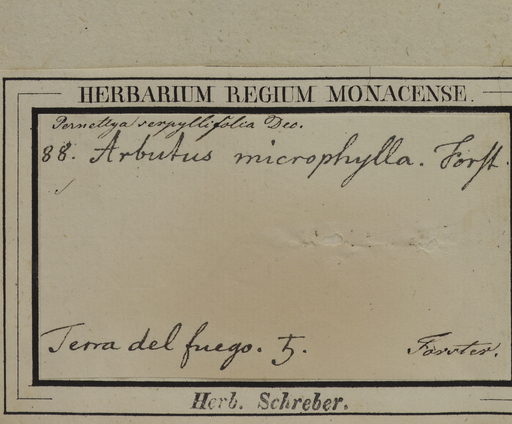 HERBARIUM REGIUM MONACENSE.
Pernettya serpyllifolia Dec.
88. Arbutus microphylla. Forst.
Terra del fuego. ♄. Forster.
Herb. Schreber.